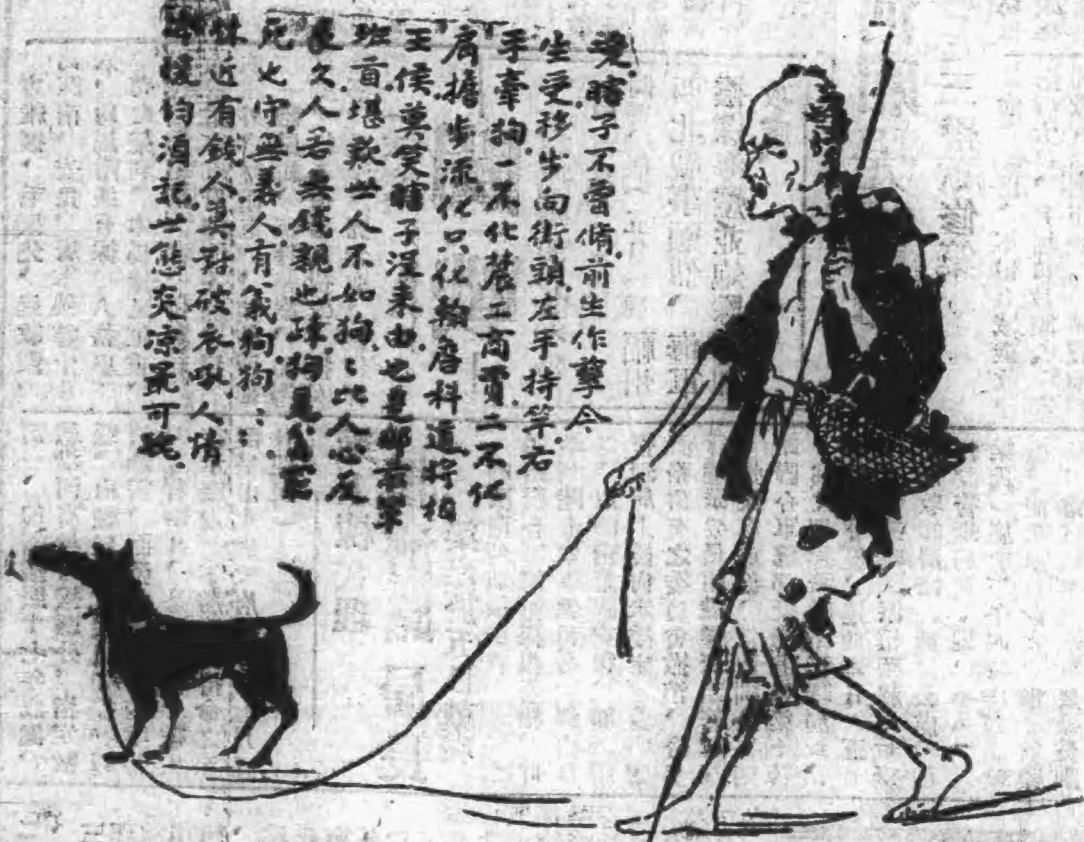 瞎子不曾脩.前生作孽今
生受.移步向街頭.左手持竿.右
手牽狗.一不化農工商賈.二不化
肩擔步流.化只化翰詹科道.將相
王侯.莫笑瞎子沒來由.也是那前輩
班首.堪歎世人不如狗.狗比人心反
長久.人若無錢親也疎.狗
死也守.無義人.有義狗.狗
近有錢人.莫對破衣吼.人情
均須記.世態炎凉最可